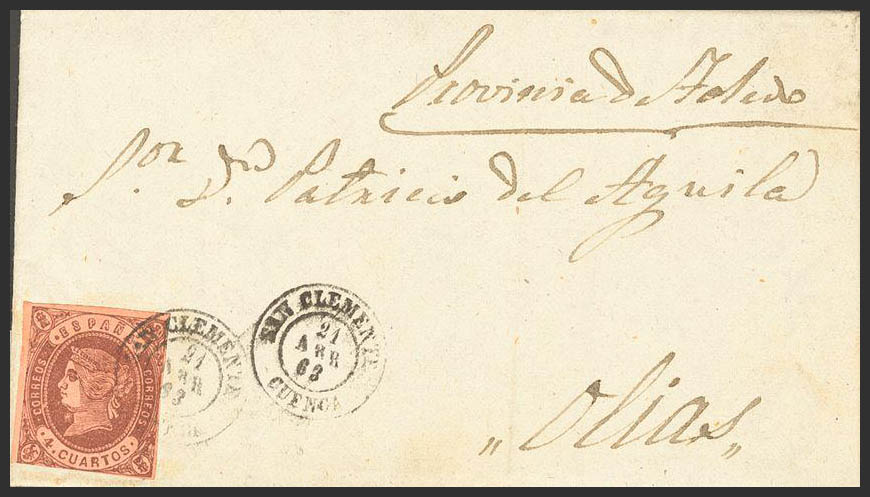 Provinia de Toledo
Sor. Dn. Patricio del Aguila
SAN CLEMENTE
21
ABR
63
CUENCA
SAN CLEMENTE
21
ABR
63
ESPAÑA
CORREOS
CORREOS
4. CUARTOS
„ Olias „